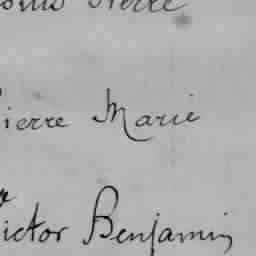 Pierre
ierre Marie
ictor Benjamin